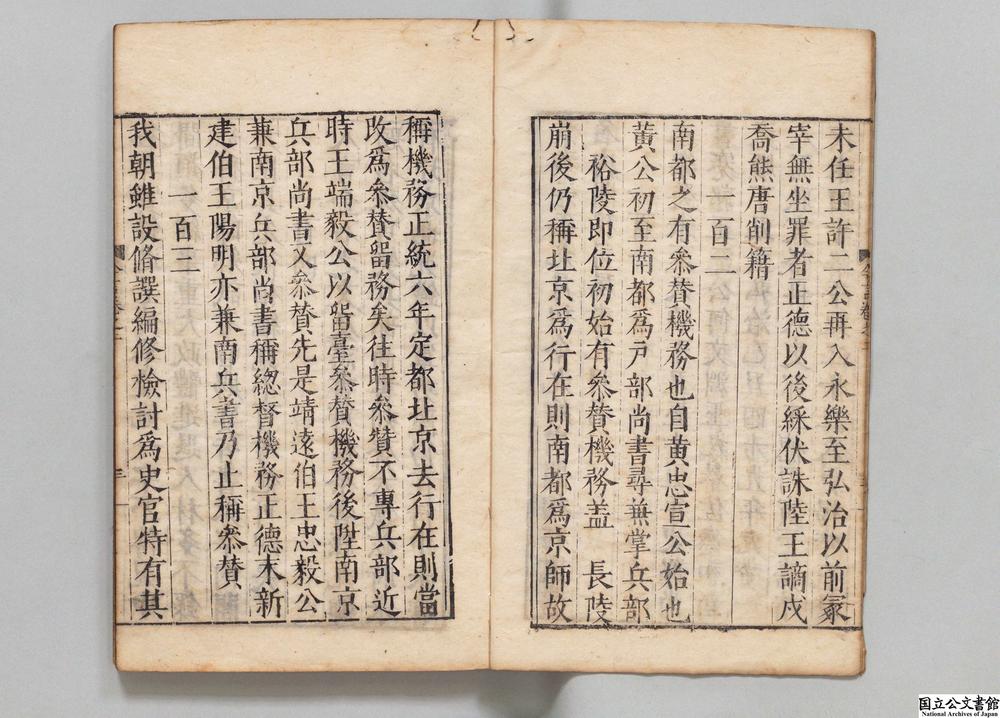 未任王許二公再入永樂至弘治以前冡
宰無坐罪者正德以後綵伏誅陸王謫戍
喬熊唐削籍
一百二
南都之有叅賛機務也自黃忠宣公始也
黃公初至南都爲戸部尚書尋兼掌兵部
裕陵即位初始有叅賛機務盖 長陵
崩後仍稱北京爲行在則南都爲京師故
稱機務正統六年定都北京去行在則當
改爲叅賛留務矣往時叅贊不專兵部近
時王端毅公以留臺叅賛機務後陞南京
兵部尚書又叅賛先是靖遠伯王忠毅公
兼南京兵部尚書稱緫督機務正德末新
建伯王陽明亦兼南兵書乃止稱叅賛
一百三
我朝雖設脩譔編修檢討爲史官特有其
国立公文書館
National Archives of Japan